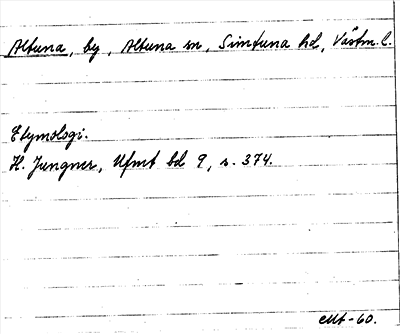 Altuna, by, Altuna sn, Simtuna hd, Västm. l.
Etymologi.
H. Jungner, Ufmt bd 9, s. 374.
-60.